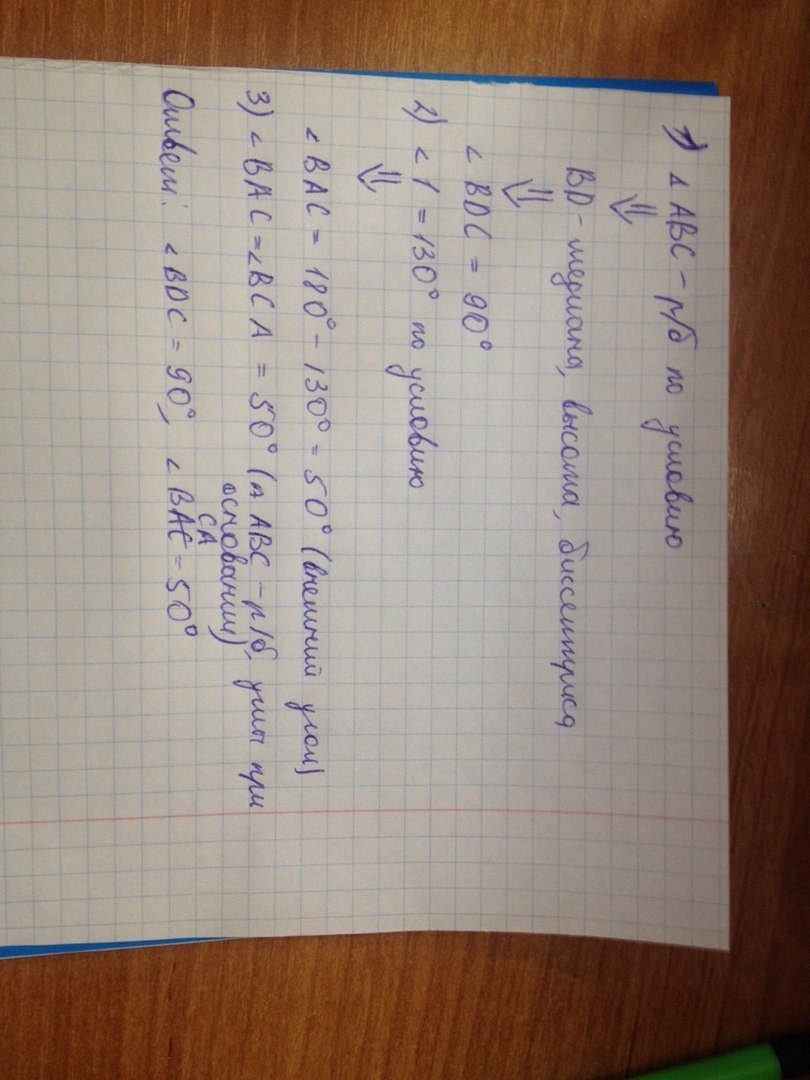 1) ∆ ABC - р/б по условию
⇓
BD - медиана, высота, биссектриса
⇓
∠ BDC = 90°
2) ∠ 1 = 130° по условию
⇓
∠ BAC = 180° - 130° = 50° (внешний угол)
3) ∠ BAC = ∠ BCA = 50° (∆ ABC - р/б, углы при
основании)
CA
Ответ: ∠ BDC = 90°, ∠ BAC = 50°